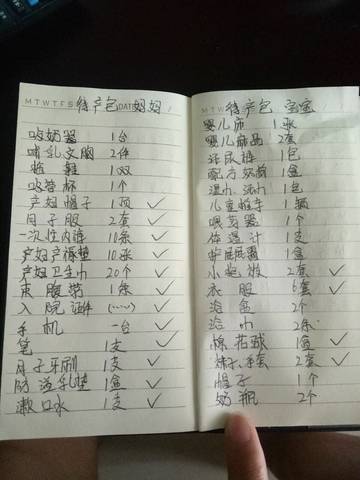 MTWTFS 待产包 DATE 妈妈
吸奶器 1台
哺乳文胸 2件
拖鞋 1双
吸管杯 1个
产妇帽子 1顶 ✓
月子服 2套 ✓
一次性内裤 10条 ✓
产妇产褥垫 10张 ✓
产妇卫生巾 20个 ✓
束腹带 1条 ✓
入院证件 (……) ✓
手机 一台 ✓
笔 1支 ✓
月子牙刷 1支 ✓
防溢乳垫 1盒 ✓
漱口水 1支 ✓
MTWTFS 待产包 宝宝
婴儿床 1张
婴儿床品 2套
纸尿裤 1包
配方奶粉 1盒
湿巾 1包
儿童推车 1辆
喂药器 1个
体温计 1支
护屁屁膏 1盒
小抱被 2套 ✓
衣服 6套 ✓
浴盆 2个
浴巾 2条
棉花球 1盒 ✓
袜子、手套 2套 ✓
帽子 1个
奶瓶 2个